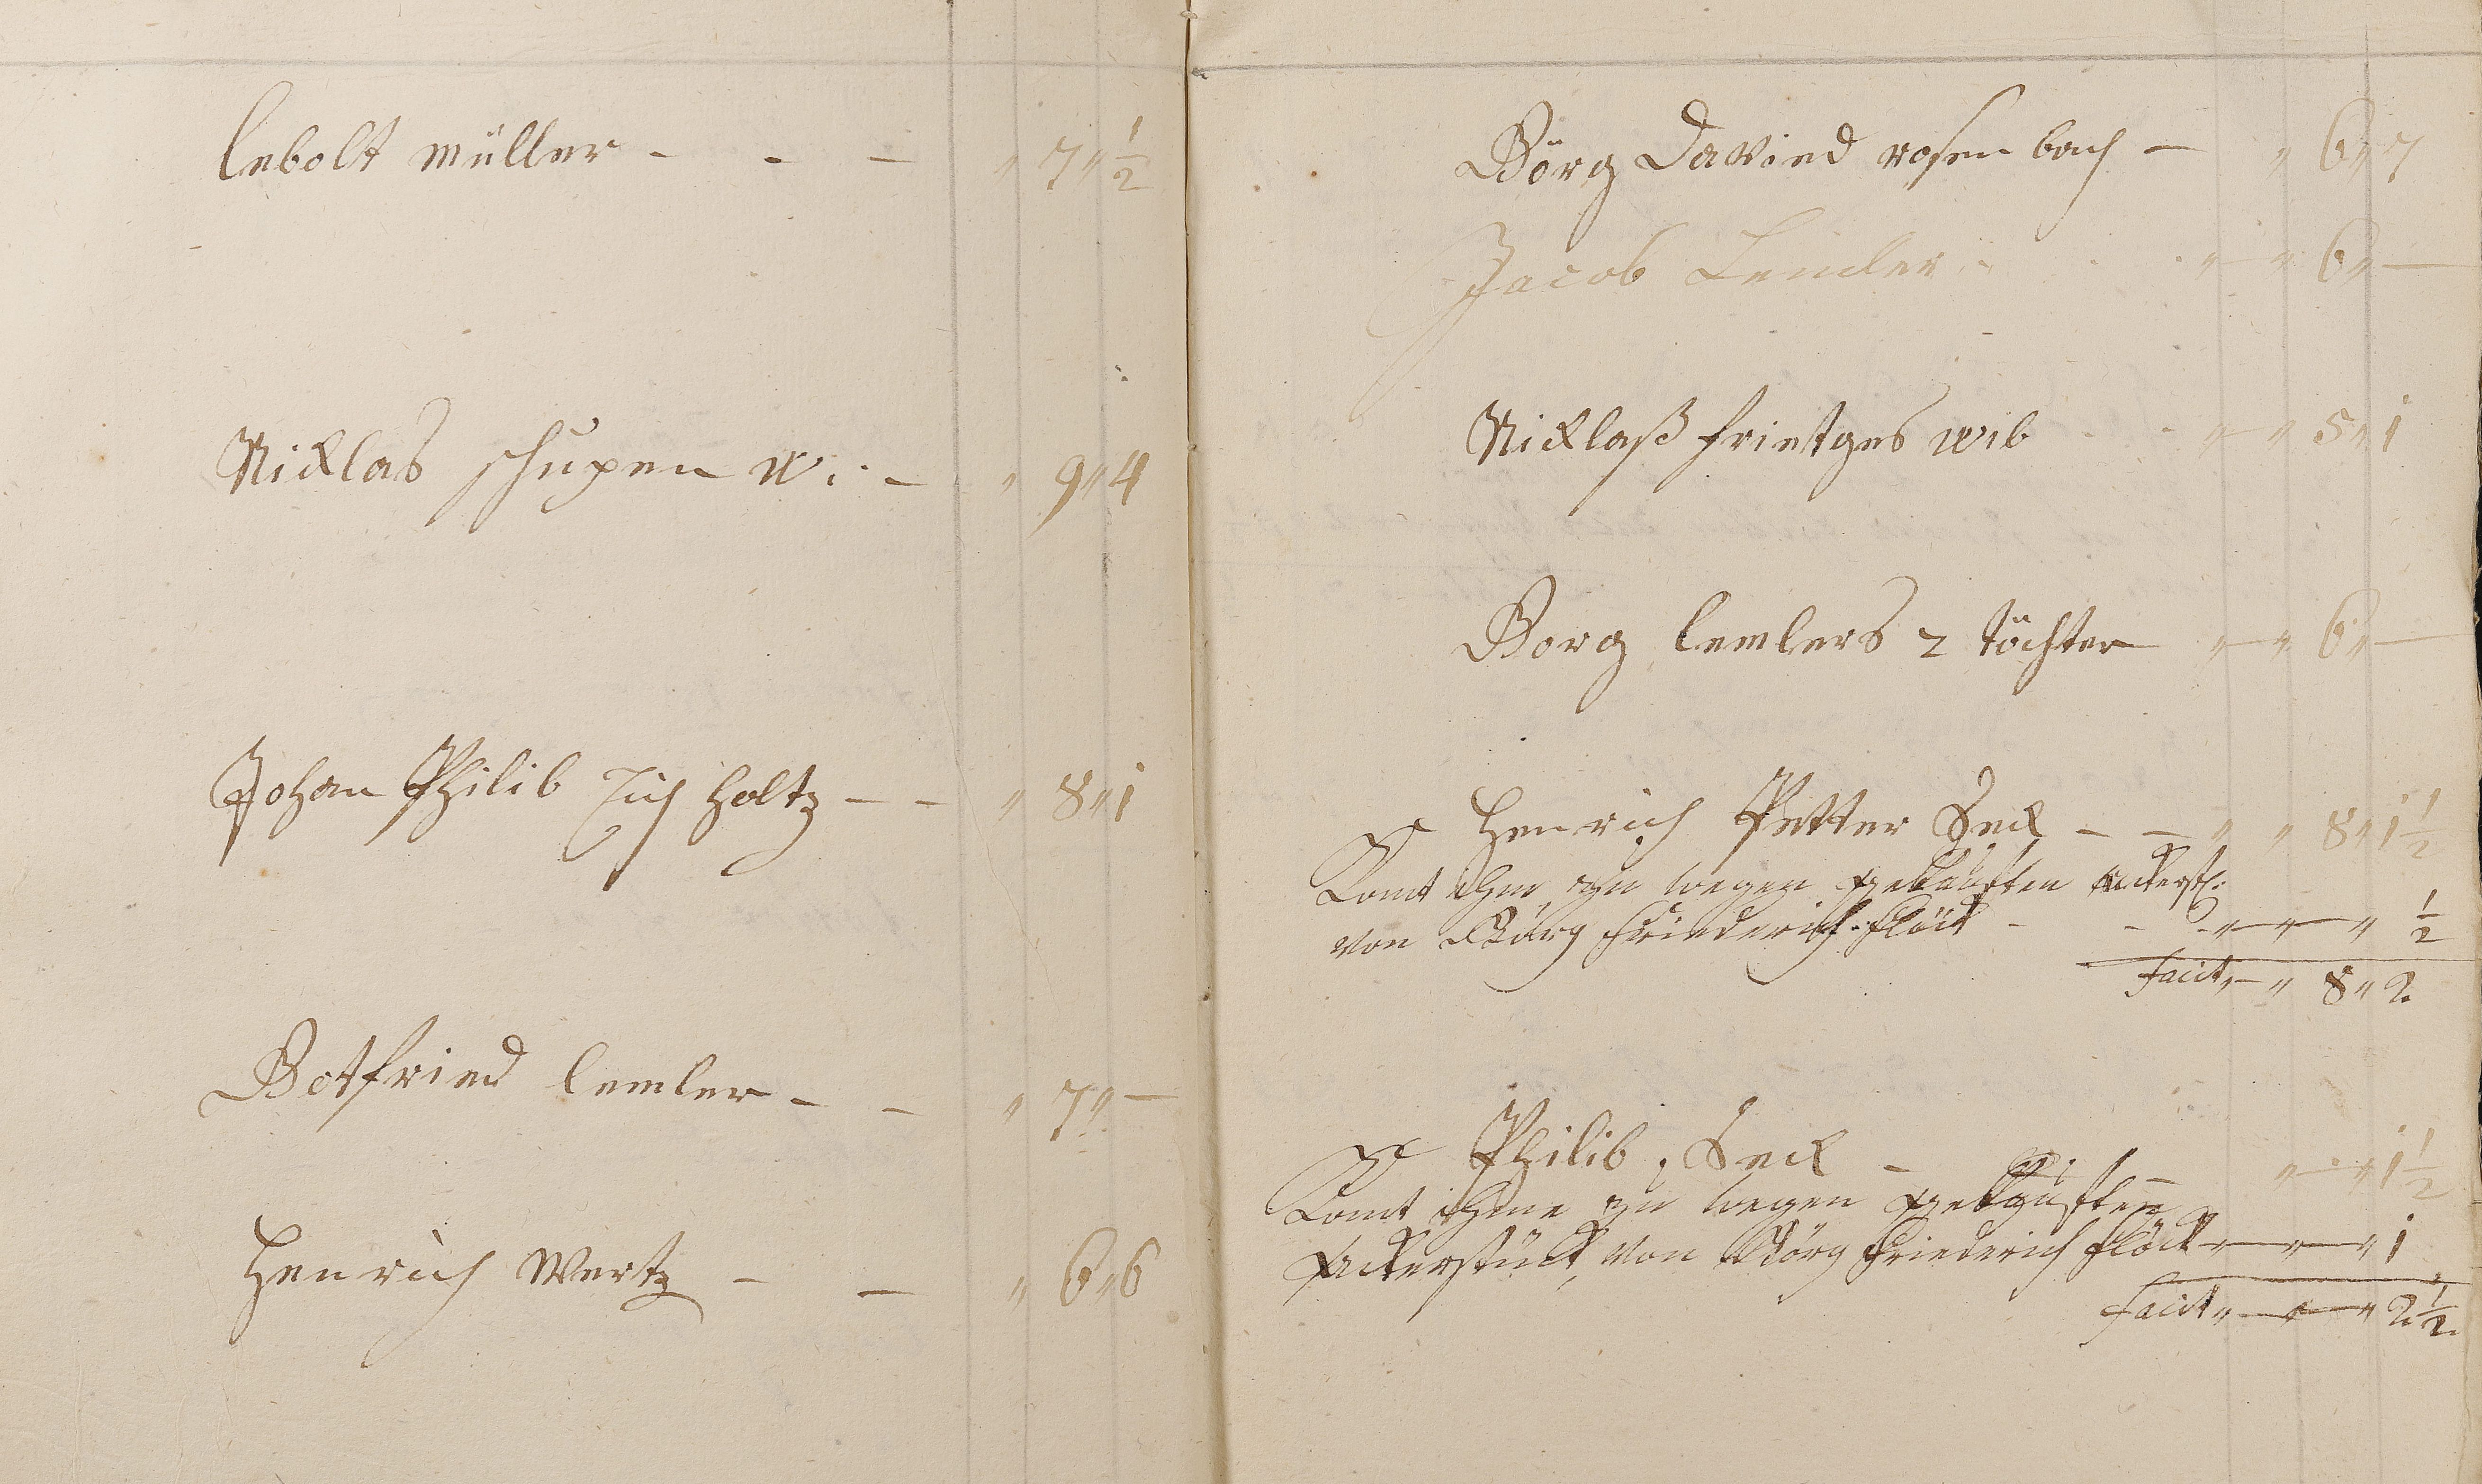 lebolt müller - - - " 7 " 1/2
Nicklas schupen W. - " 9 " 4
Johan Philib Eich holtz - - " 8 " 1
Gotfried lemler - - " 7 " —
Henrich Wertz - - " 6 " 6
Görg Davied rosen bach - " 6 " 7
Jacob Lemler - " — " 6 " —
Nicklaß frietges wib - - " — " 5 " 1
Gorg lemlers 2 töchter " — " 6 " —
Henrich Petter Seck - - " " 8 " 1 1/2
Komt ihm zu wegen gekauften ackerst.
von Görg Friederich Flöck - - - " — " — " 1/2
Facit " — " 8 " 2.
Philib Seck - " — " 1 1/2
Komt ihme zu wegen gekauften
Ackerstück, von Görg Friederich Flöck " — " — " 1
Facit " — " — " 2. 1/2.